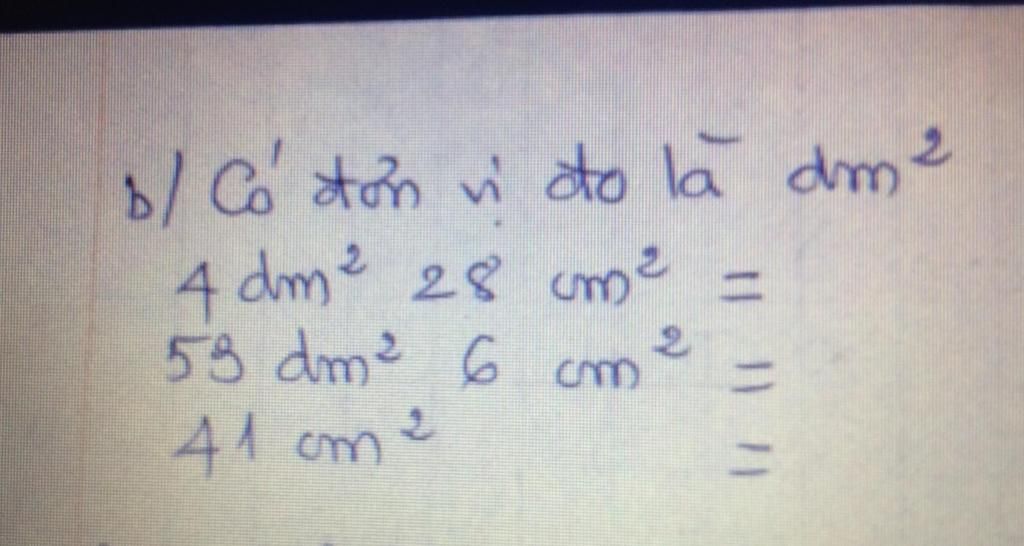 b/ Có đơn vị đo là dm²
4 dm² 28 cm² =
59 dm² 6 cm² =
41 cm² =